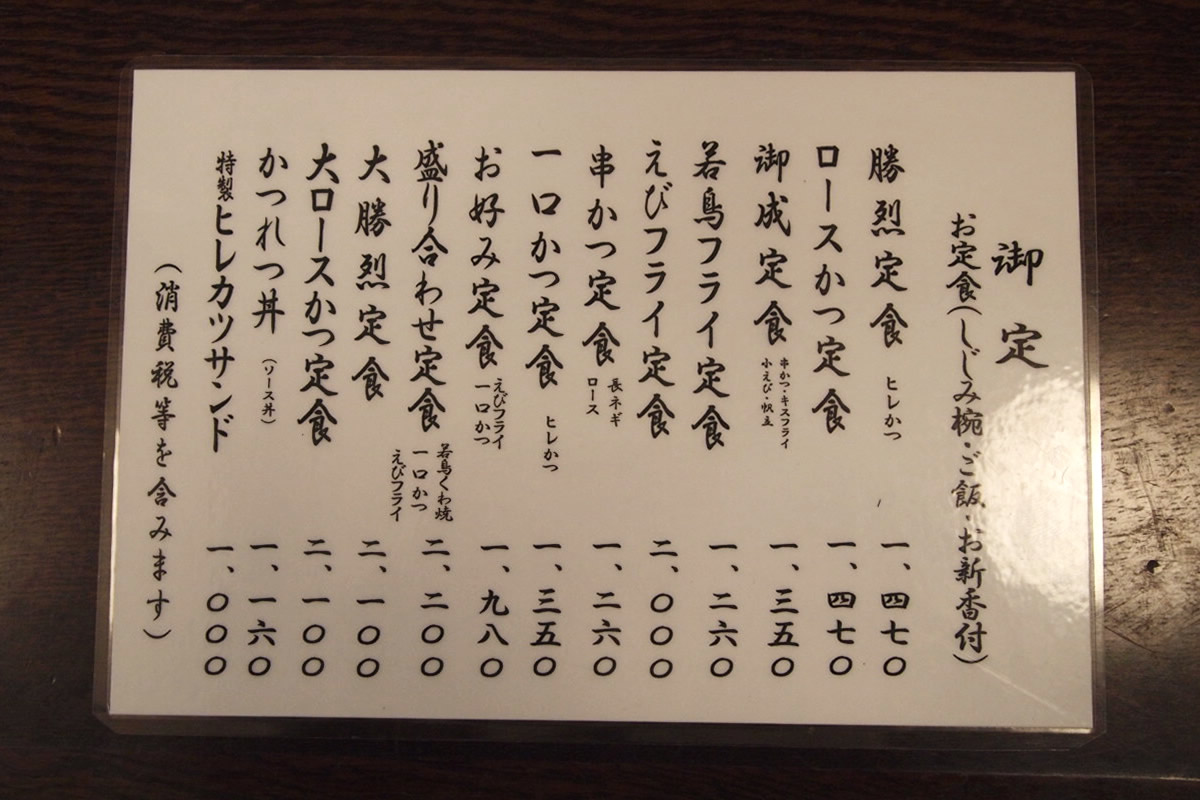 御定
お定食(しじみ椀・ご飯・お新香付)
勝烈定食 ヒレかつ 一、四七〇
ロースかつ定食 一、四七〇
御成定食 串かつ・キスフライ 小えび・帆立 一、三五〇
若鳥フライ定食 一、二六〇
えびフライ定食 二、〇〇〇
串かつ定食 長ネギ ロース 一、二六〇
一口かつ定食 ヒレかつ 一、三五〇
お好み定食 えびフライ 一口かつ 一、九八〇
盛り合わせ定食 若鳥くわ焼 一口かつ えびフライ 二、二〇〇
大勝烈定食 二、一〇〇
大ロースかつ定食 二、一〇〇
かつれつ丼 (ソース丼) 一、一六〇
特製ヒレカツサンド 一、〇〇〇
(消費税等を含みます)